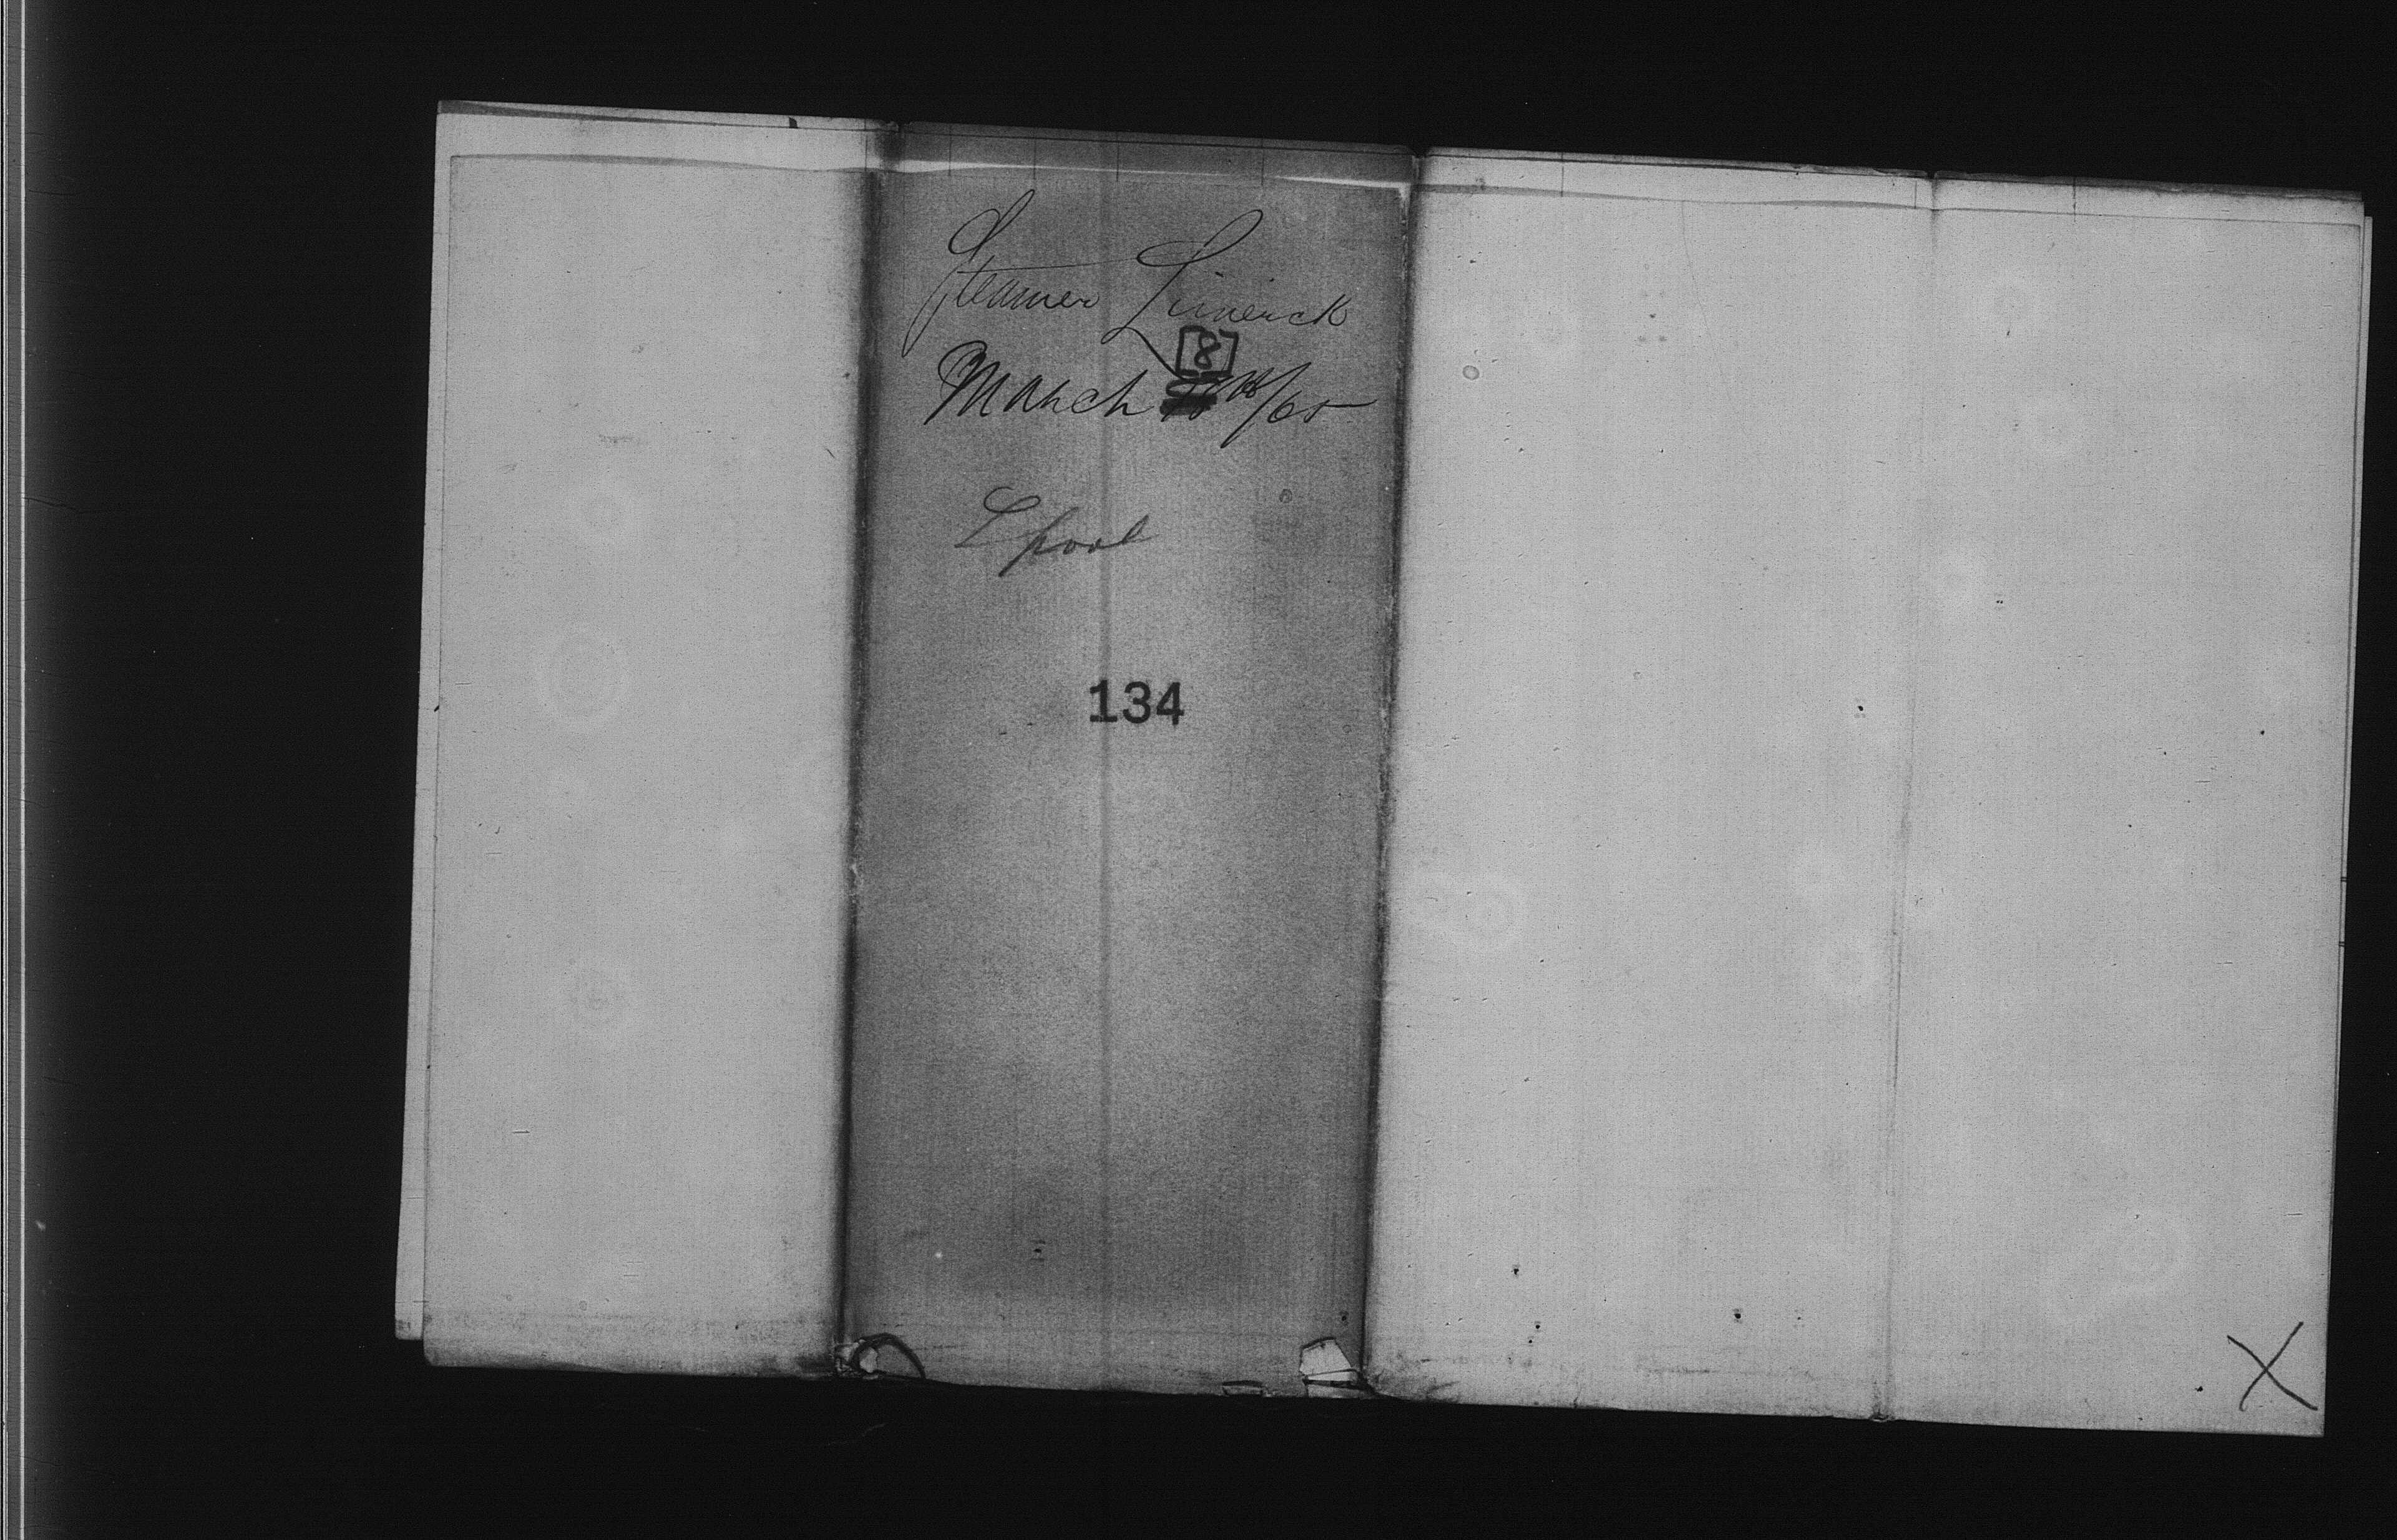 Steamer Limerick
[8]
March th/65
Lpool
134
X